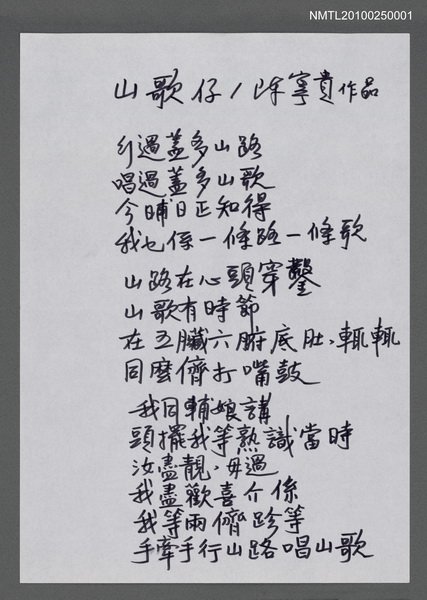 NMTL20100250001
山歌仔/陳寧貴作品
行過蓋多山路
唱過蓋多山歌
今晡日正知得
我也係一條路一條歌
山路在心頭穿鑿
山歌有時節
在五臟六腑底肚、輒輒
同麼儕打嘴鼓
我同輔娘講
頭擺我等熟識當時
汝盡靚,毋過
我盡歡喜介係
我等兩儕跈等
手牽手行山路唱山歌